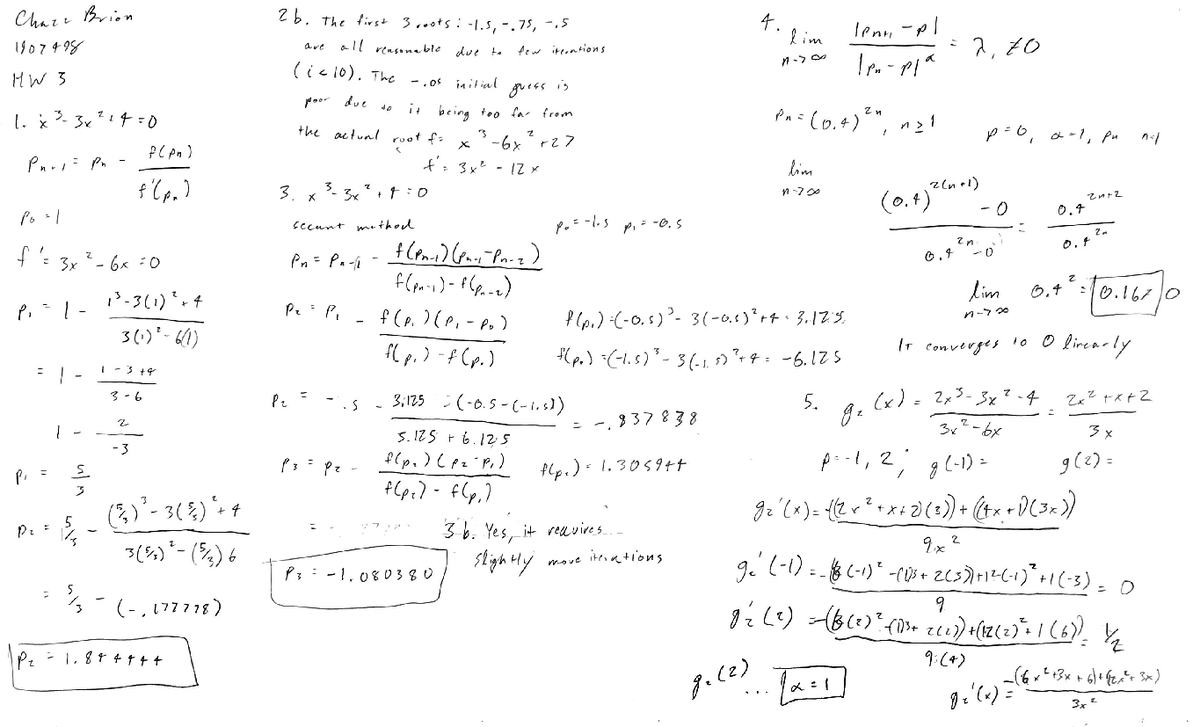 Chazz Brion
1907498
HW 3
1. x³-3x²+4=0
Pn+1 = Pn - f(Pn) / f'(Pn)
P0 = 1
f' = 3x²-6x = 0
P1 = 1 - (1³-3(1)²+4) / (3(1)²-6(1))
= 1 - (1-3+4) / (3-6)
1 - 2 / -3
P1 = 5/3
P2 = 5/3 - ((5/3)³-3(5/3)²+4) / (3(5/3)²-(5/3)6)
= 5/3 - (-.177778)
P2 = 1.844444
2b. The first 3 roots: -1.5, -.75, -.5
are all reasonable due to few iterations
(i<10). The -.05 initial guess is
poor due to it being too far from
the actual root f= x³-6x²+27
f' = 3x² - 12x
3. x³-3x²+4=0
secant method P0=-1.5 P1=-0.5
Pn = Pn-1 - f(Pn-1)(Pn-1-Pn-2) / f(Pn-1)-f(Pn-2)
P2 = P1 - f(P1)(P1-P0) / f(P1)-f(P0)
f(P1)=(-0.5)³-3(-0.5)²+4=3.125
f(P0)=(-1.5)³-3(-1.5)²+4=-6.125
P2 = -.5 - 3.125(-0.5-(-1.5)) / 3.125+6.125 = -.837838
P3 = P2 - f(P2)(P2-P1) / f(P2)-f(P1) f(P2)=1.305944
3b. Yes, it requires
slightly more iterations
P3 = -1.080380
4. lim n->∞ |Pn+1-P| / |Pn-P|^α = λ, ≠0
Pn=(0.4)^2n, n≥1 P=0, α=1, Pn n=1
lim n->∞ (0.4)^2(n+1) -0 / 0.4^2n -0 = 0.4^2n+2 / 0.4^2n
lim n->∞ 0.4² = 0.16 ≠ 0
It converges to 0 linearly
5. g2(x) = 2x³-3x²-4 / 3x²-6x = 2x²+x+2 / 3x
P=-1, 2; g(-1)= g(2)=
g2'(x)=-((2x²+x+2)(3))+((4x+1)(3x)) / 9x²
g2'(-1) = 0
g2'(2) = 1/2
g2(2) ... α=1